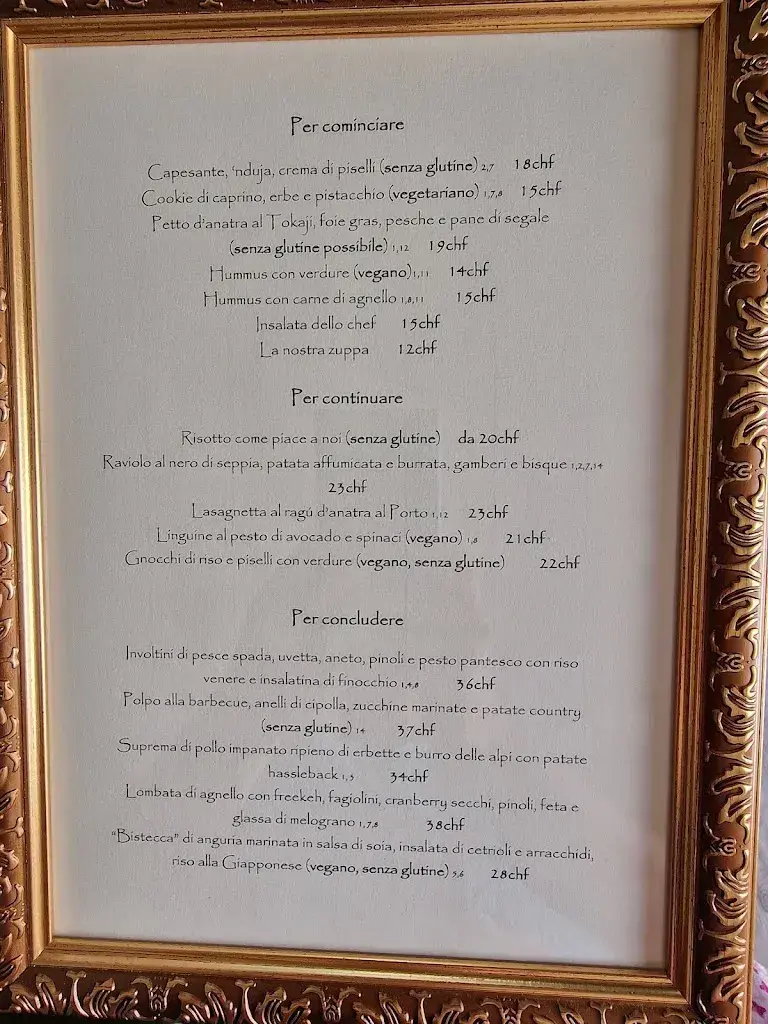 Per cominciare
Capesante, 'nduja, crema di piselli (senza glutine) 2,7 18chf
Cookie di caprino, erbe e pistacchio (vegetariano) 1,7,8 15chf
Petto d'anatra al Tokaji, foie gras, pesche e pane di segale
(senza glutine possibile) 1,12 19chf
Hummus con verdure (vegano)1,11 14chf
Hummus con carne di agnello 1,8,11 15chf
Insalata dello chef 15chf
La nostra zuppa 12chf
Per continuare
Risotto come piace a noi (senza glutine) da 20chf
Raviolo al nero di seppia, patata affumicata e burrata, gamberi e bisque 1,2,7,14
23chf
Lasagnetta al ragú d'anatra al Porto 1,12 23chf
Linguine al pesto di avocado e spinaci (vegano) 1,8 21chf
Gnocchi di riso e piselli con verdure (vegano, senza glutine) 22chf
Per concludere
Involtini di pesce spada, uvetta, aneto, pinoli e pesto pantesco con riso
venere e insalatina di finocchio 1,4,8 36chf
Polpo alla barbecue, anelli di cipolla, zucchine marinate e patate country
(senza glutine) 14 37chf
Suprema di pollo impanato ripieno di erbette e burro delle alpi con patate
hassleback 1,3 34chf
Lombata di agnello con freekeh, fagiolini, cranberry secchi, pinoli, feta e
glassa di melograno 1,7,8 38chf
"Bistecca" di anguria marinata in salsa di soia, insalata di cetrioli e arracchidi,
riso alla Giapponese (vegano, senza glutine) 5,6 28chf